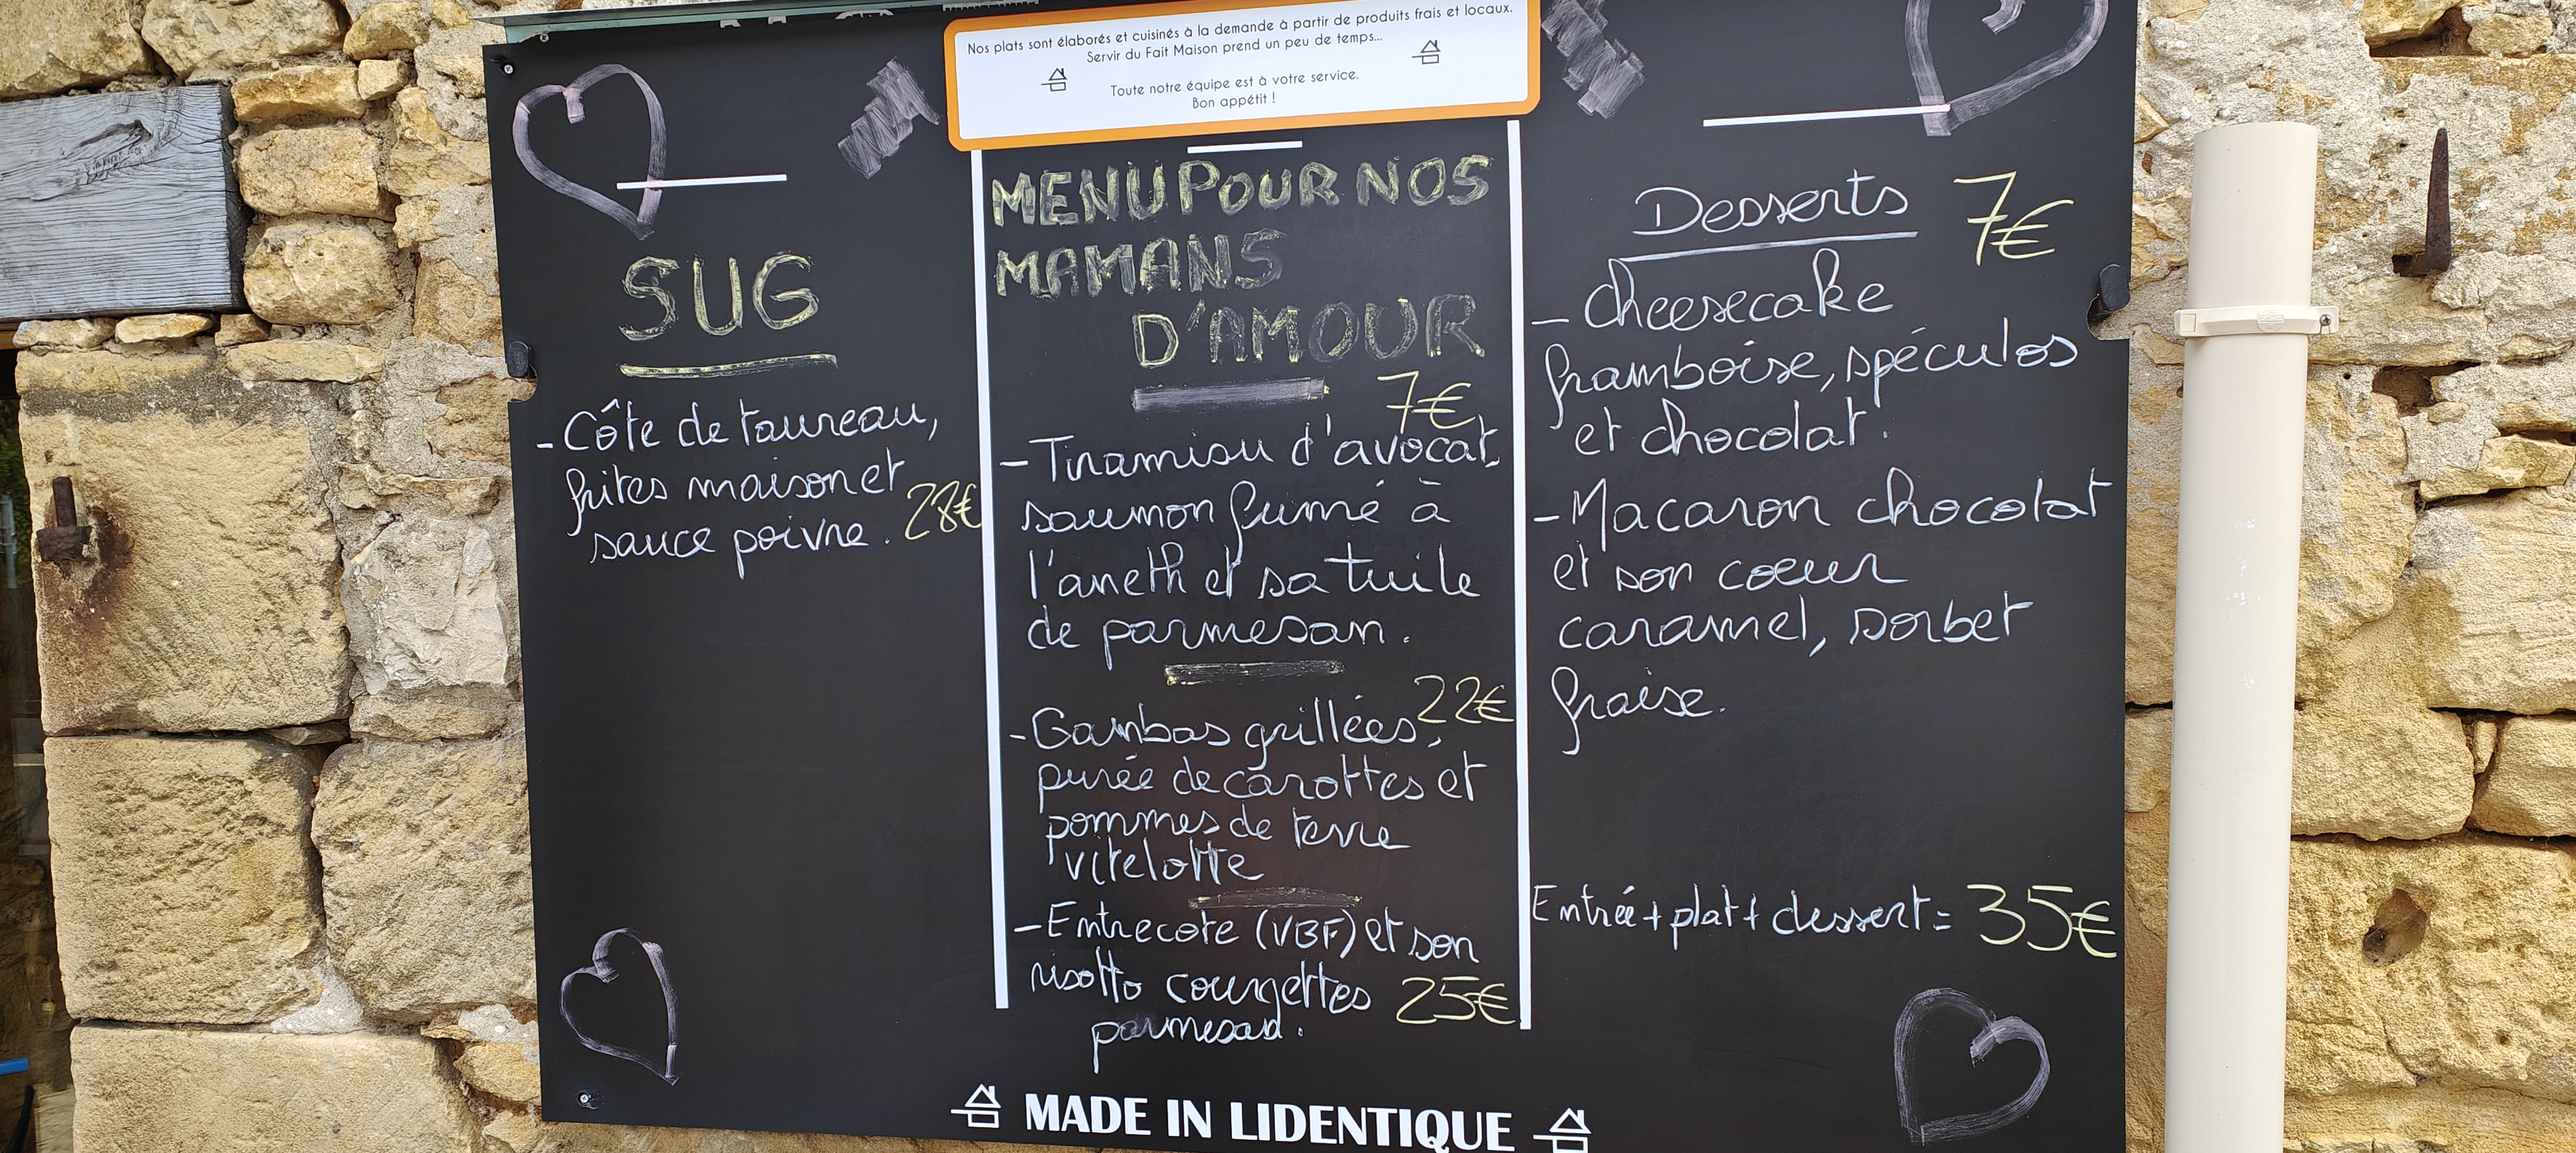 Nos plats sont élaborés et cuisinés à la demande à partir de produits frais et locaux.
Servir du Fait Maison prend un peu de temps...
Toute notre équipe est à votre service.
Bon appétit !
SUG
- Côte de taureau,
frites maison et
sauce poivre. 28€
MENU POUR NOS
MAMANS
D'AMOUR
7€
- Tiramisu d'avocat,
saumon fumé à
l'aneth et sa tuile
de parmesan.
22€
- Gambas grillées,
purée de carottes et
pommes de terre
vitelotte
- Entrecote (VBF) et son
risotto courgettes 25€
parmesan.
Desserts 7€
- Cheesecake
framboise, spéculos
et chocolat.
- Macaron chocolat
et son coeur
caramel, sorbet
fraise.
Entrée + plat + dessert = 35€
MADE IN LIDENTIQUE